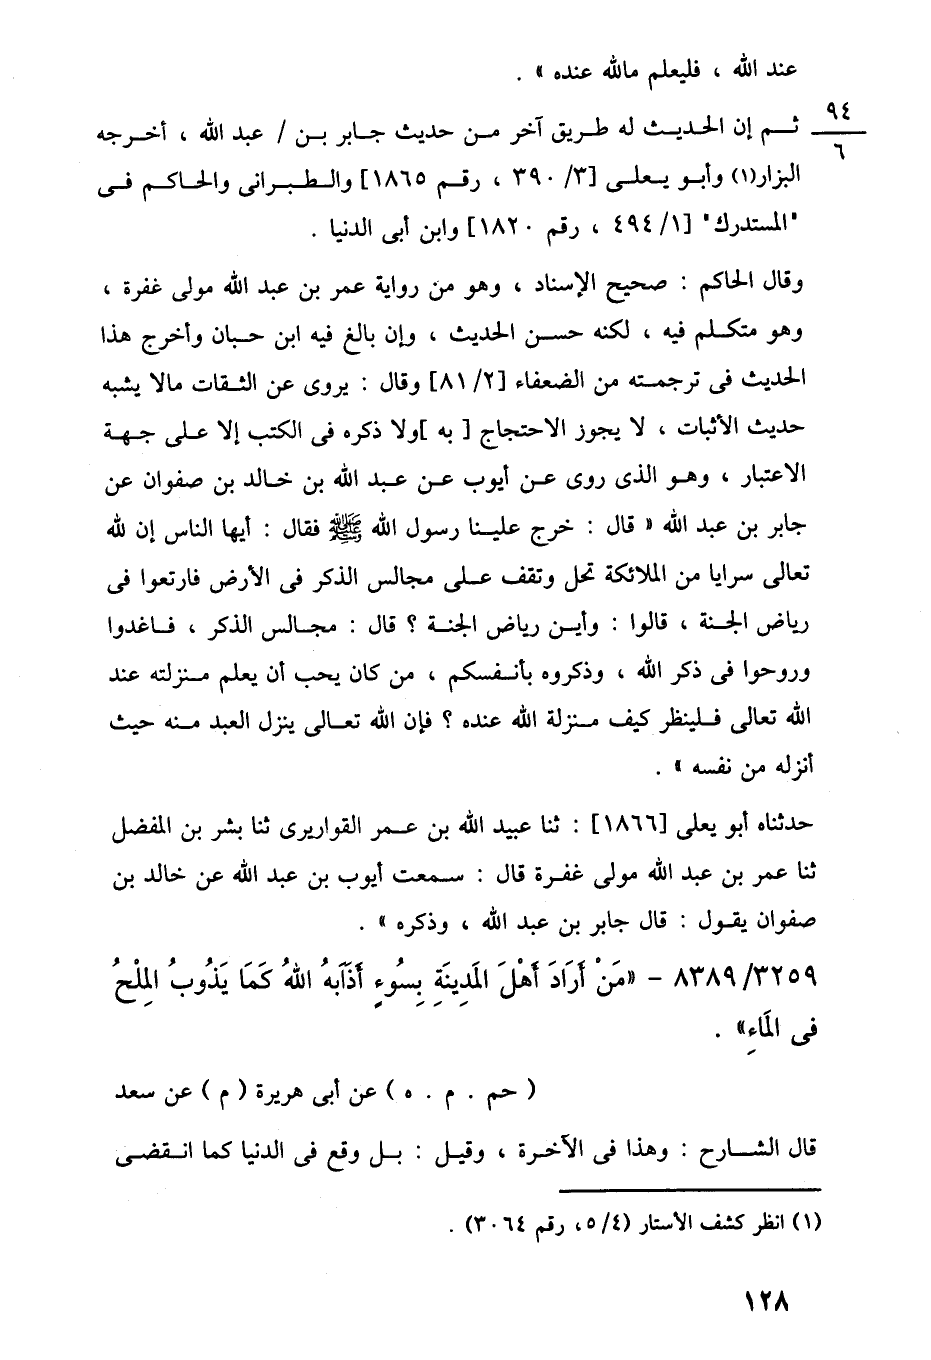 عند الله ، فليعلم مالله عنده » .
٩٤
٦
ثـم إن الحديث له طريق آخر من حديث جابر بن / عبد الله ، أخرجه
البزار(١) وأبو يعلى [٣/ ٣٩٠ ، رقم ١٨٦٥] والطبرانى والحاكم فى
"المستدرك" [١/ ٤٩٤ ، رقم ١٨٢٠] وابن أبى الدنيا .
وقال الحاكم : صحيح الإسناد ، وهو من رواية عمر بن عبد الله مولى غفرة ،
وهو متكلم فيه ، لكنه حسن الحديث ، وإن بالغ فيه ابن حبان وأخرج هذا
الحديث فى ترجمته من الضعفاء [٢/ ٨١] وقال : يروى عن الثقات مالا يشبه
حديث الأثبات ، لا يجوز الاحتجاج [ به ]ولا ذكره فى الكتب إلا على جهة
الاعتبار ، وهو الذى روى عن أيوب عن عبد الله بن خالد بن صفوان عن
جابر بن عبد الله « قال : خرج علينا رسول الله ﷺ فقال : أيها الناس إن لله
تعالى سرايا من الملائكة تحل وتقف على مجالس الذكر فى الأرض فارتعوا فى
رياض الجنة ، قالوا : وأين رياض الجنة ؟ قال : مجالس الذكر ، فاغدوا
وروحوا فى ذكر الله ، وذكروه بأنفسكم ، من كان يحب أن يعلم منزلته عند
الله تعالى فلينظر كيف منزلة الله عنده ؟ فإن الله تعالى ينزل العبد منه حيث
أنزله من نفسه » .
حدثناه أبو يعلى [١٨٦٦] : ثنا عبيد الله بن عمر القواريرى ثنا بشر بن المفضل
ثنا عمر بن عبد الله مولى غفرة قال : سمعت أيوب بن عبد الله عن خالد بن
صفوان يقول : قال جابر بن عبد الله ، وذكره » .
٨٣٨٩/٣٢٥٩ - «مَنْ أَرَادَ أَهْلَ الْمَدِينَةِ بِسُوءٍ أَذَابَهُ اللهُ كَمَا يَذُوبُ الْمِلْحُ
فى الْمَاءِ» .
( حم . م . ه ) عن أبى هريرة ( م ) عن سعد
قال الشارح : وهذا فى الآخرة ، وقيل : بل وقع فى الدنيا كما انقضى
(١) انظر كشف الأستار (٤/ ٥، رقم ٣٠٦٤) .
١٢٨